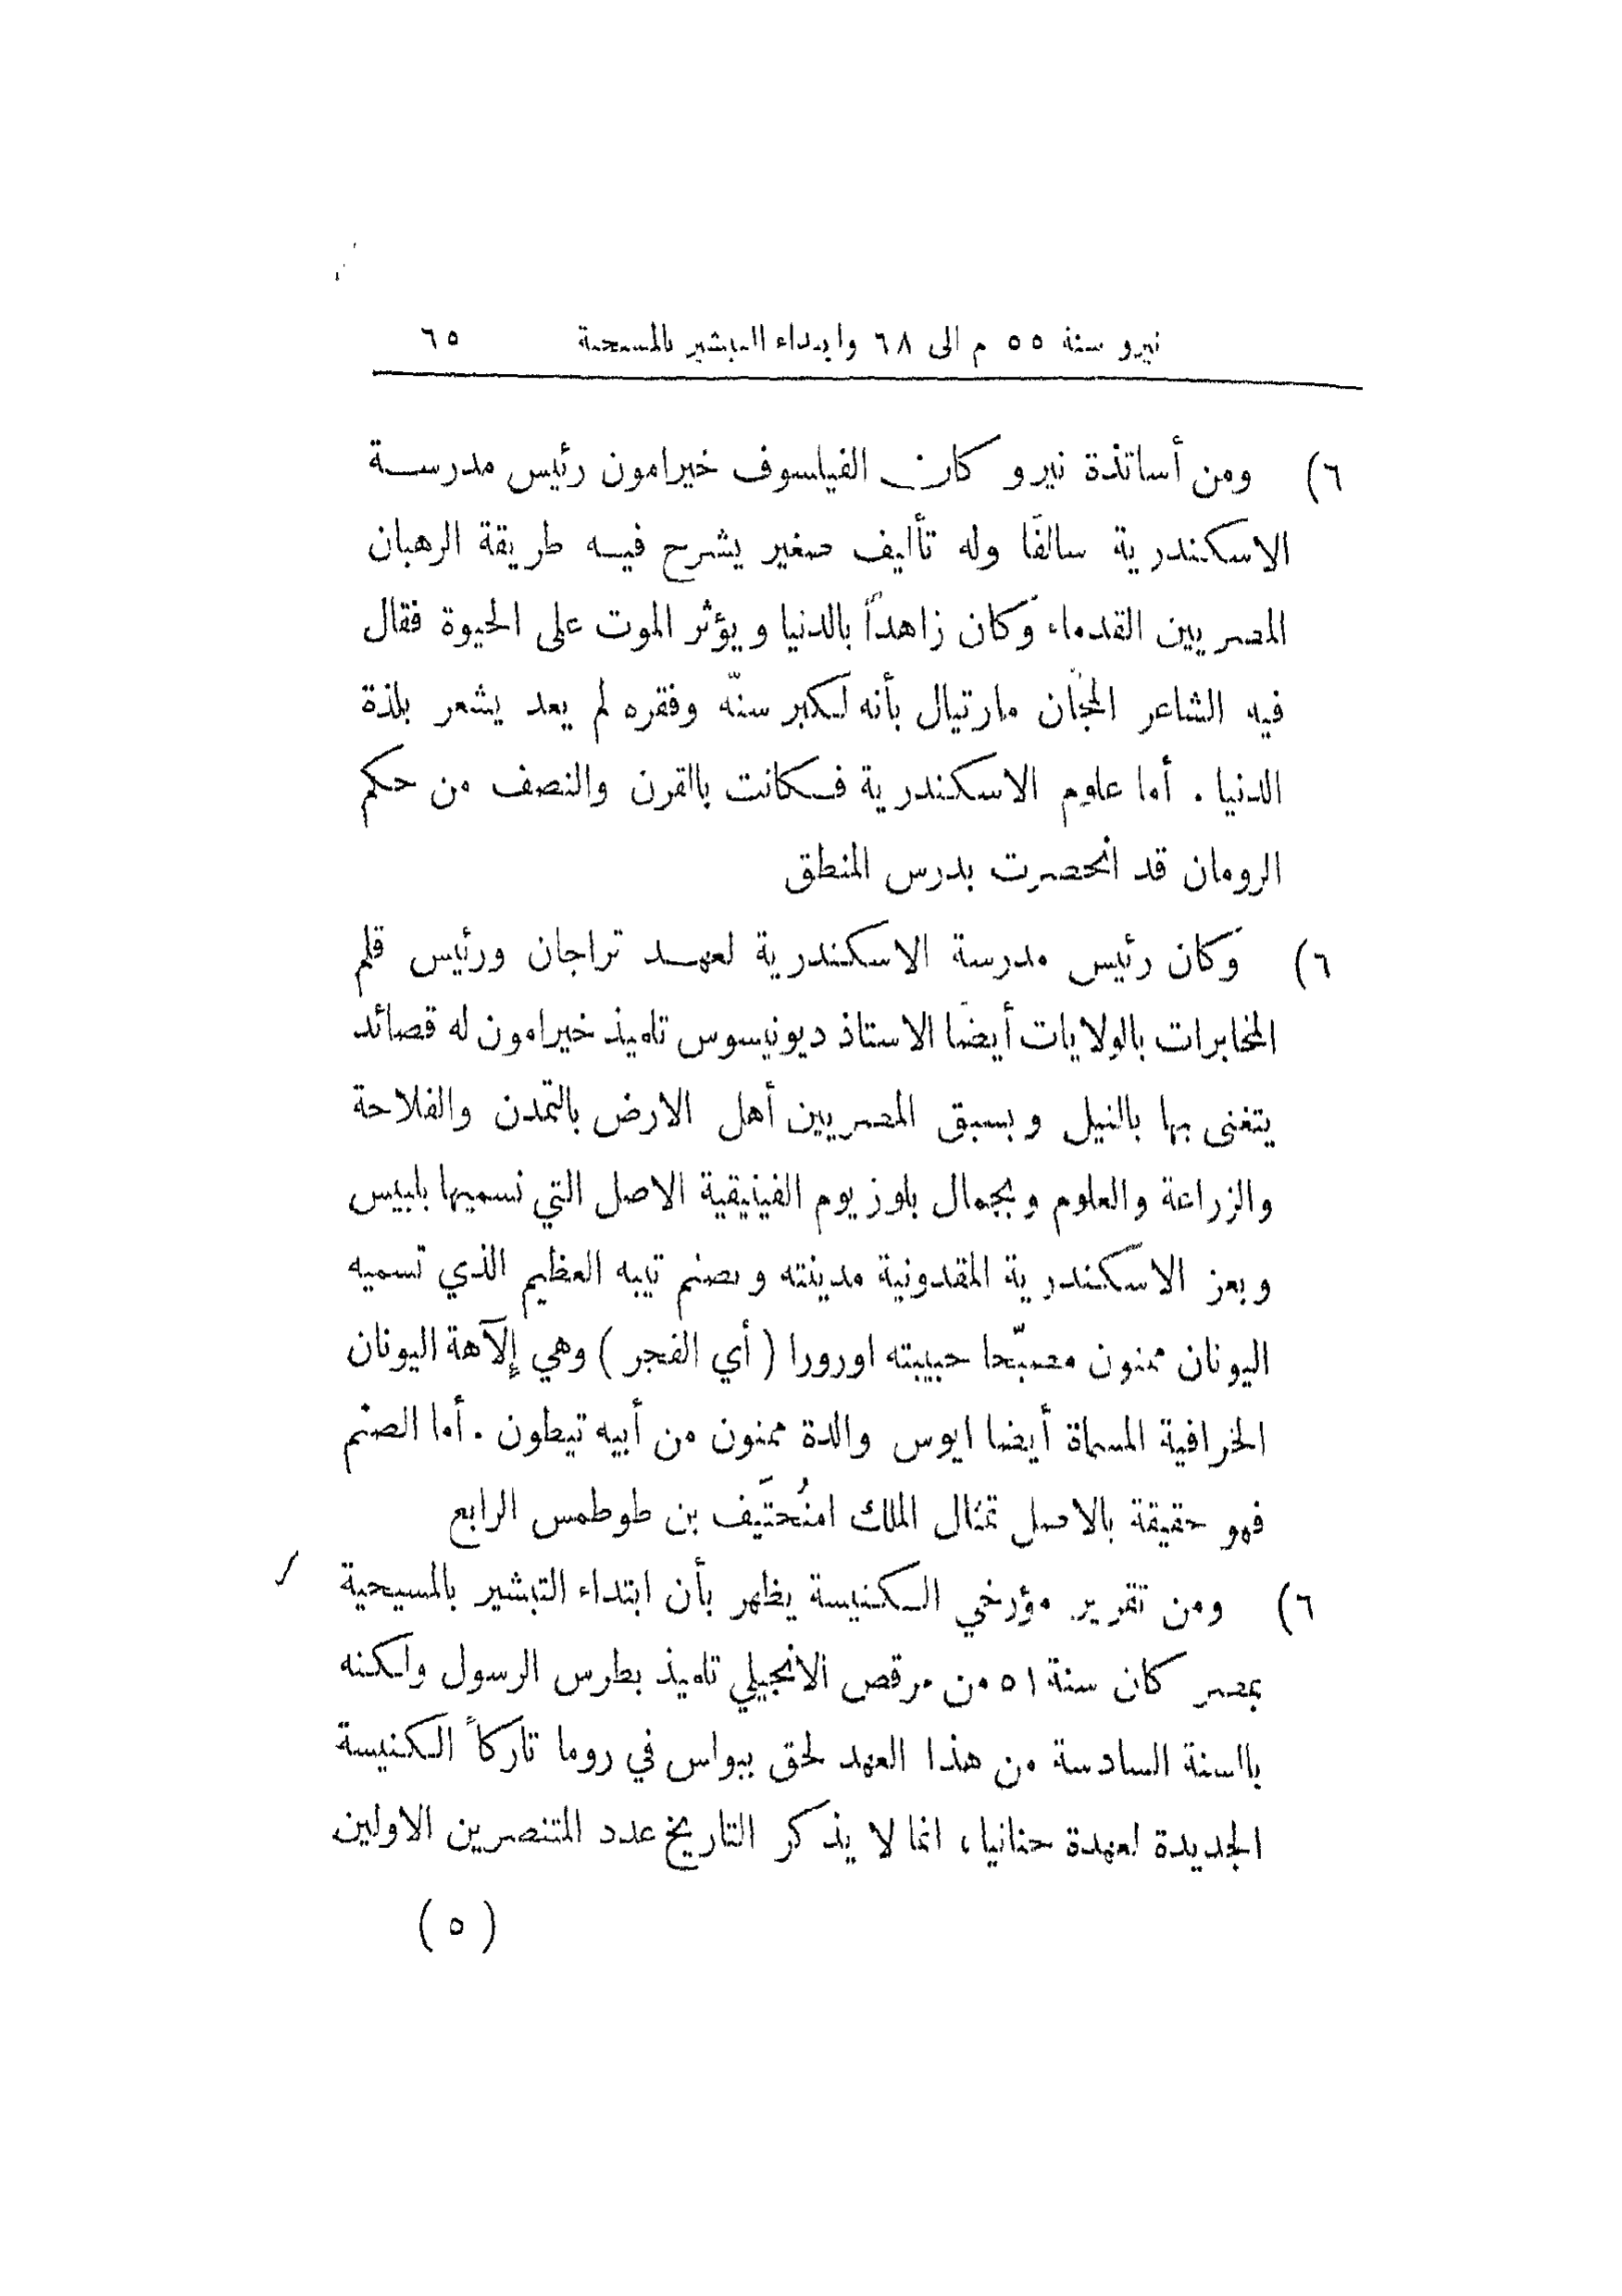 نيرو سنة ٥٥ م الى ٦٨ وابتداء التبشير بالمسيحية ٦٥
٦) ومن أساتذة نيرو كان الفيلسوف خيرامون رئيس مدرسة
الاسكندرية سالفًا وله تأليف صغير يشرح فيه طريقة الرهبان
المصريين القدماء وكان زاهداً بالدنيا ويؤثر الموت على الحيوة فقال
فيه الشاعر المجّان مارتيال بأنه لكبر سنّه وفقره لم يعد يشعر بلذة
الدنيا . أما علوم الاسكندرية فكانت بالقرن والنصف من حكم
الرومان قد انحصرت بدرس المنطق
٦) وكان رئيس مدرسة الاسكندرية لعهد تراجان ورئيس قلم
المخابرات بالولايات أيضًا الاستاذ ديونيسوس تلميذ خيرامون له قصائد
يتغنى بها بالنيل وبسبق المصريين أهل الارض بالتمدن والفلاحة
والزراعة والعلوم وبجمال بلوزيوم الفينيقية الاصل التي نسميها بلبيس
وبعز الاسكندرية المقدونية مدينته وبصنم تيبه العظيم الذي تسميه
اليونان ممنون مصبّحا حبيبته اورورا ( أي الفجر ) وهي إلآهة اليونان
الخرافية المسماة أيضا ايوس والدة ممنون من أبيه تيطون . أما الصنم
فهو حقيقة بالاصل تمثال الملك امنُحتَيف بن طوطمس الرابع
٦) ومن تقرير مؤرخي الكنيسة يظهر بأن ابتداء التبشير بالمسيحية
بمصر كان سنة ٥١ من مرقص الانجيلي تلميذ بطرس الرسول ولكنه
بالسنة السادسة من هذا العهد لحق ببولس في روما تاركاً الكنيسة
الجديدة لعهدة حنانيا، انما لا يذكر التاريخ عدد المتنصرين الاولين
( ٥ )